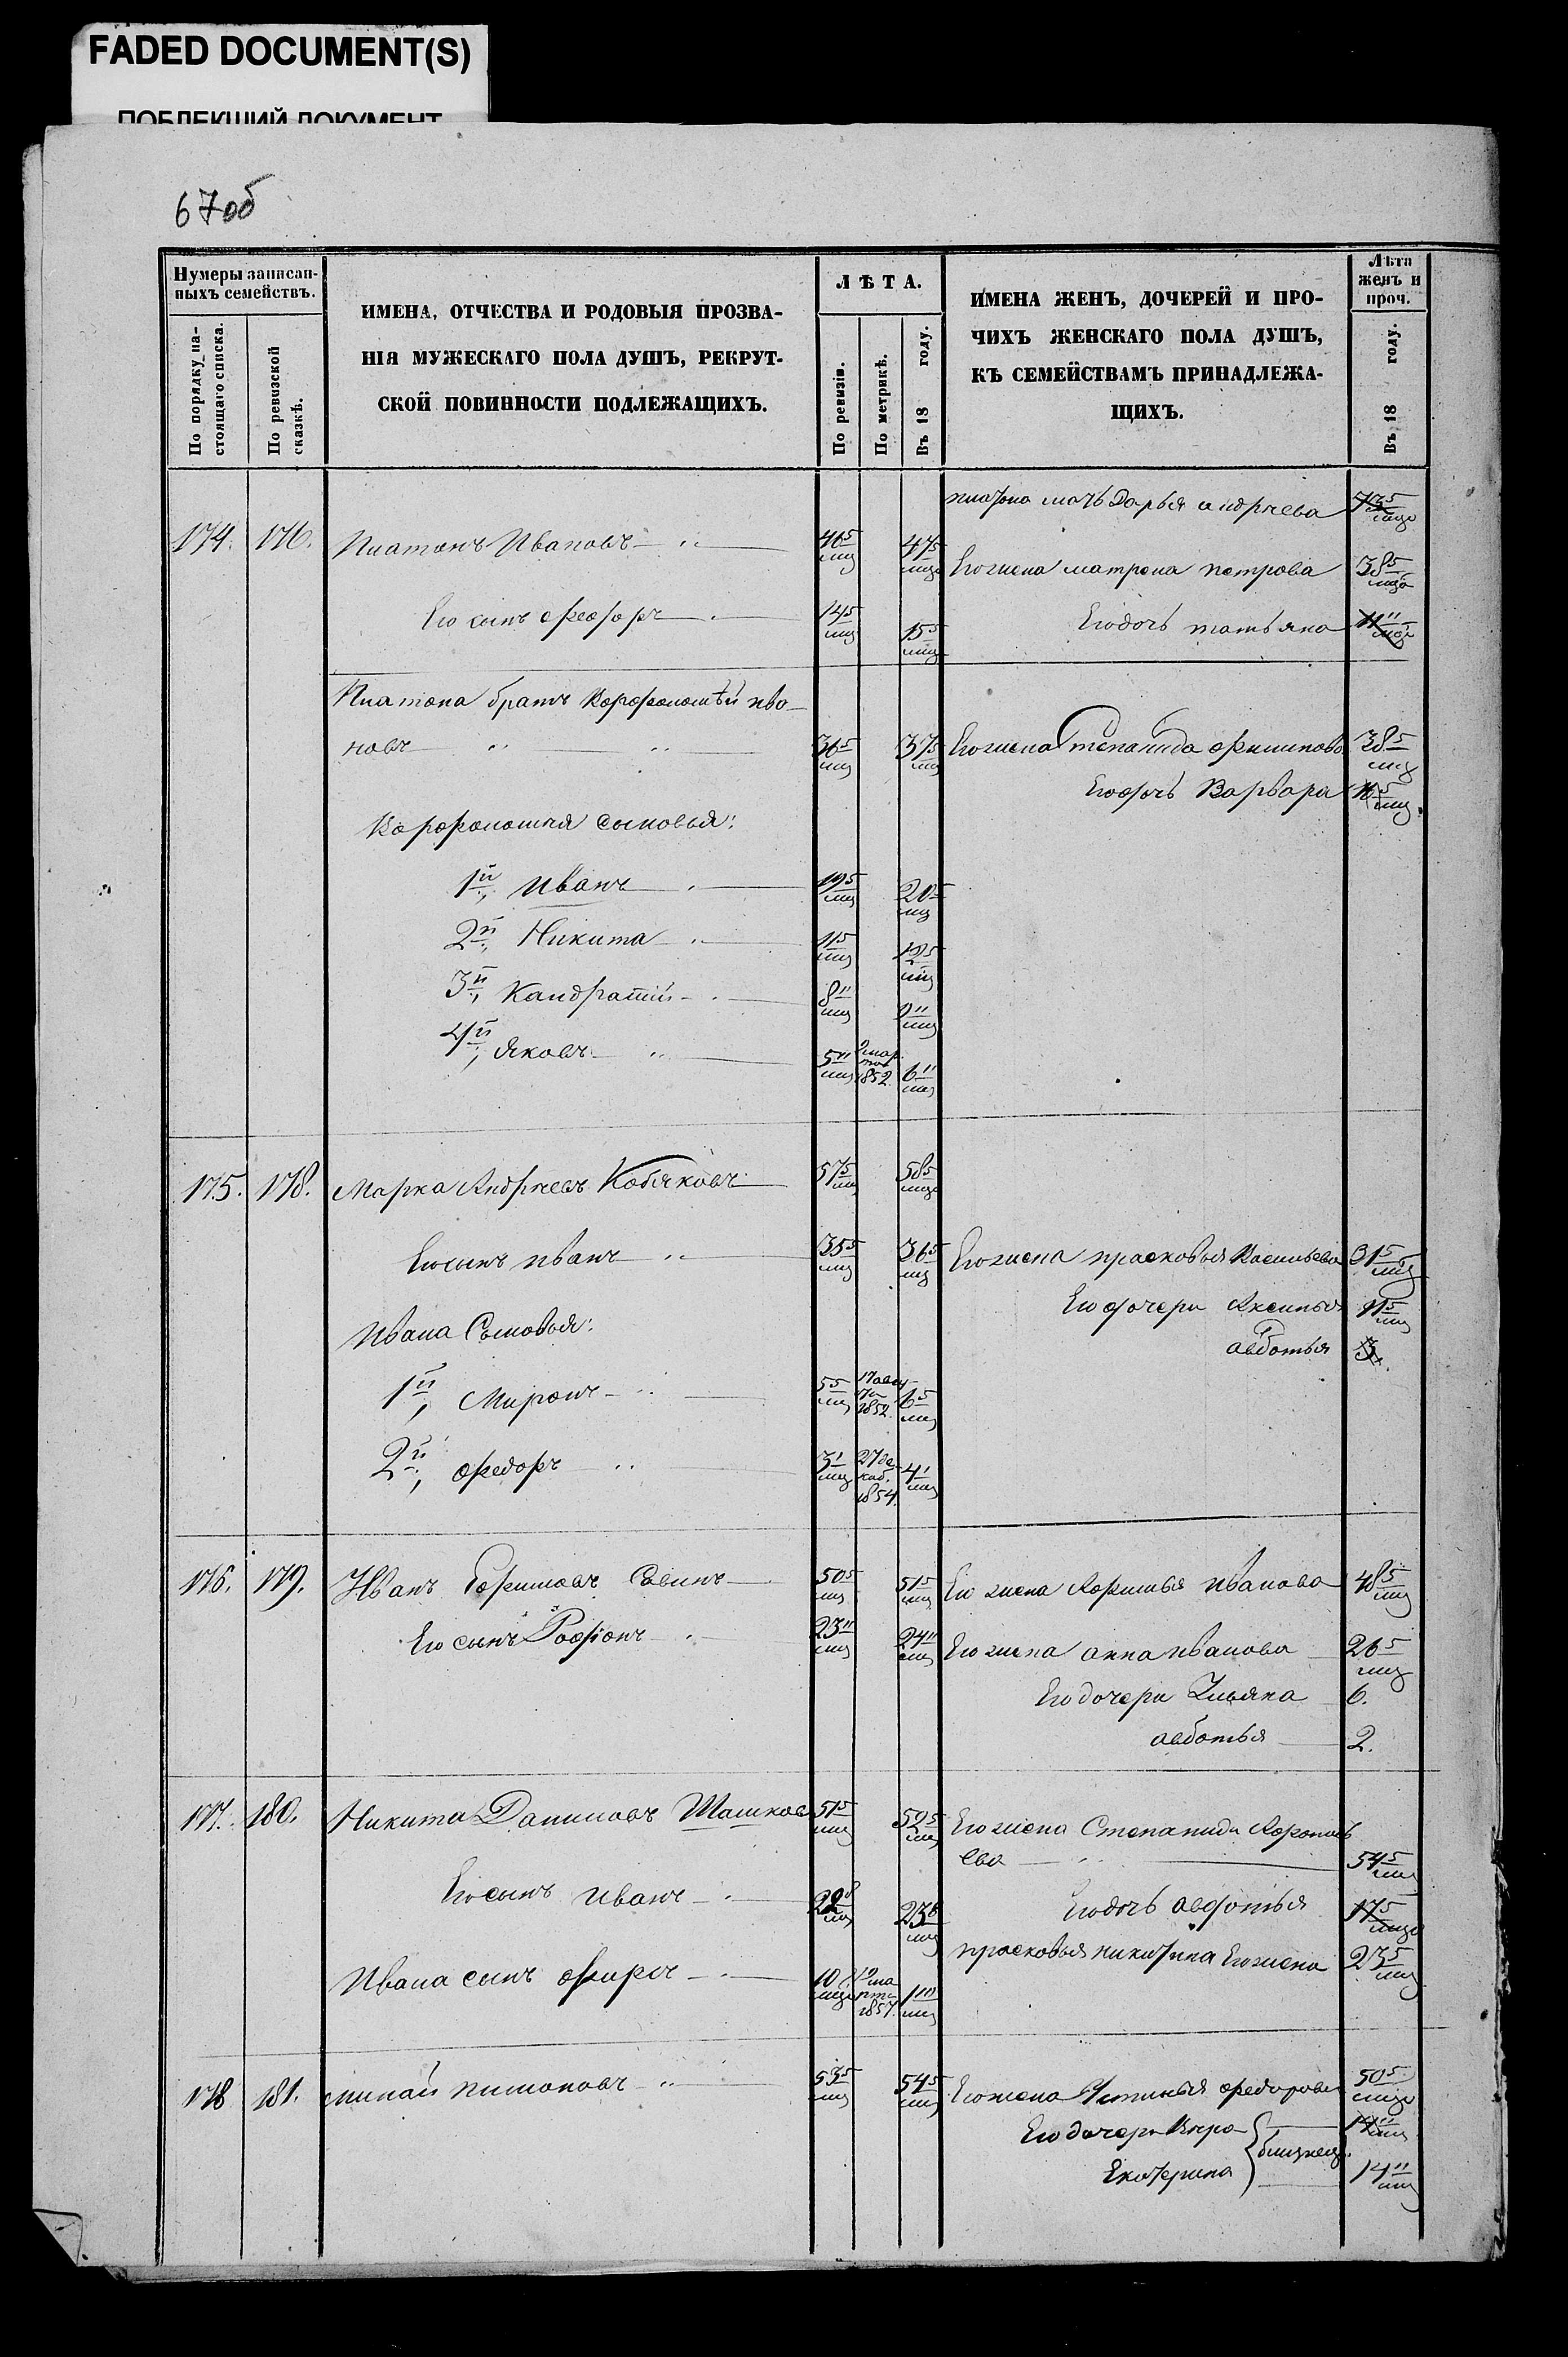 FADED DOCUMENT(S)
ПОБЛЕКШИЙ ДОКУМЕНТ
67об
Нумеры записан-
ныхъ семействъ.
По порядку на-
стоящаго списка.
По ревизской
сказкѣ.
ИМЕНА, ОТЧЕСТВА И РОДОВЫЯ ПРОЗВА-
НІЯ МУЖЕСКАГО ПОЛА ДУШЪ, РЕКРУТ-
СКОЙ ПОВИННОСТИ ПОДЛЕЖАЩИХЪ.
ЛѢТА.
По ревизіи.
По метрикѣ.
Въ 18 году.
ИМЕНА ЖЕНЪ, ДОЧЕРЕЙ И ПРО-
ЧИХЪ ЖЕНСКАГО ПОЛА ДУШЪ,
КЪ СЕМЕЙСТВАМЪ ПРИНАДЛЕЖА-
ЩИХЪ.
Лѣта
женъ и
проч.
Въ 18 году.
платона мать Дарья андреева 73 5/мце
174. 176. Платонъ Ивановъ 46 5/мц 47 5/мце
Его жена матрена петрова 38 5/мце
Его сынъ федоръ 14 5/мц 15 5/мц
Его дочь татьяна 11 11/мце
Платона братъ Варфоломѣй ива-
новъ 36 5/мц 37 5/мц Его жена Степанида филипова 38 5/мц
Его дочь Варвара 11 5/мц
Варфоломея сыновья:
1й, иванъ 19 5/мц 20 5/мц
2й, Никита 11 5/мц 12 5/мц
3й, Кандратий 8 11/мц 9 11/мц
4й, Яковъ 5 11/мц 2 мар
та
1852. 6 11/мц
175. 178. Марка Андреевъ Кобяковъ 57 5/мц 58 5/мце
Его сынъ иванъ 35 5/мц 36 5/мц Его жена прасковья Васильева 31 5/мц
Его дочери Аксинья 11 5/мц
авдотья 3.
Ивана Сыновья:
1й, Миронъ 5 5/мц 17 авгу
ста
1852. 6 5/мц
2й, федоръ 3 1/мц 27 де
каб.
1854. 4 1/мц
176. 179. Иванъ Савинъ 50 5/мц 51 5/мц Его жена иванова 48 5/мц
Его сынъ Родіонъ 23 11/мц 24 11/мц Его жена анна иванова 26 5/мц
Его дочери Ульяна 6.
авдотья 2.
177. 180. Никита Даниловъ Шашков 51 5/мц 52 5/мц Его жена Степанида
ева 54 5/мц
Его сынъ иванъ 22 8/мц 23 8/мц
Его дочь авдотья 17 5/мце
прасковья никитина Его жена 23 5/мц
Ивана сынъ фирсъ 10/мце 12 ма
рта
1857. 1 10/мц
178 181. минай пимоновъ 53 5/мц 54 5/мц Его жена Устинья федорова 50 5/мце
Его дочери Вера 14 11/мц
близнец.
Екатерина 14 11/мц